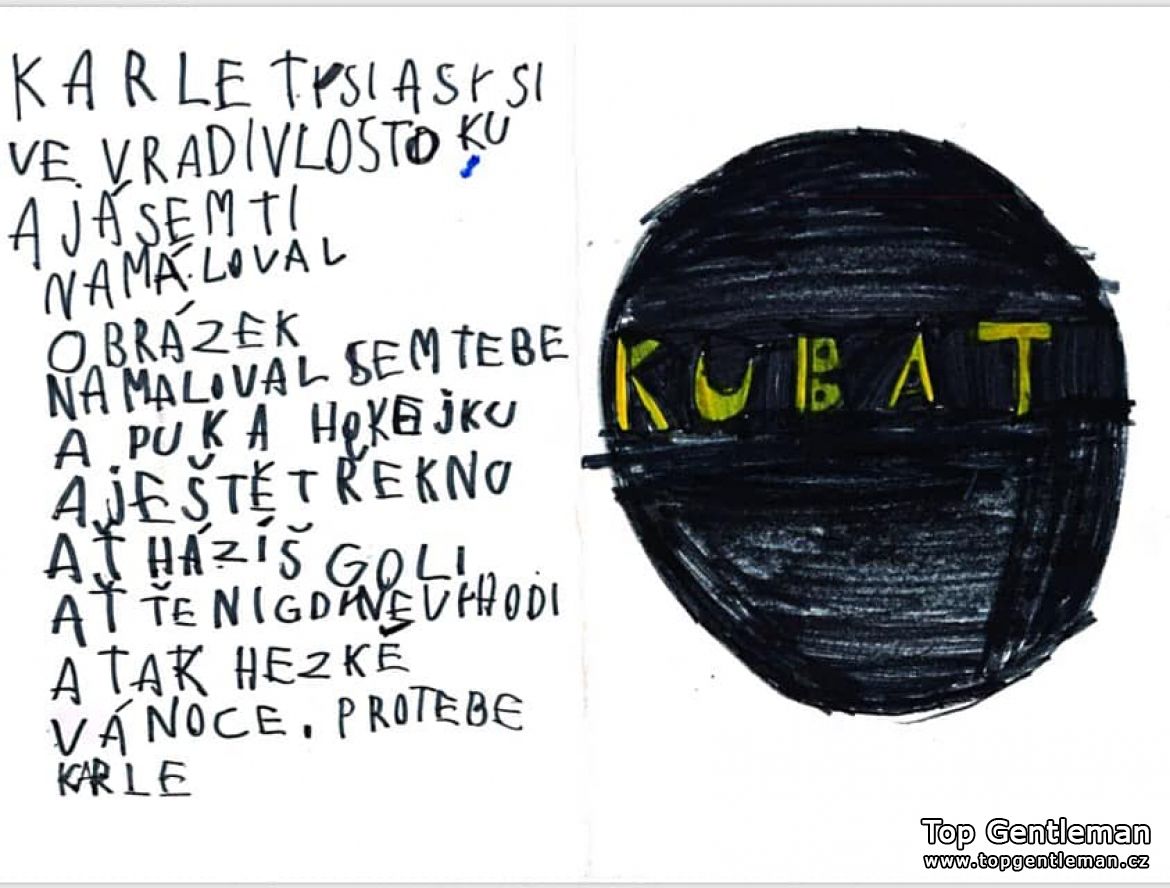 KARLE TYSIASYSI
VE VRADIVLOSTOKU
A JÁ SEM TI
NAMÁLOVAL
OBRÁZEK
NAMALOVAL SEM TEBE
A PUK A HOKEJKU
A JEŠTĚ TŘEKNO
AŤ HÁZÍŠ GOLI
AŤ ŤE NIGDY NEVYHODI
A TAK HEZKĚ
VÁNOCE. PROTEBE
KARLE
KUBAT
Top Gentleman
www.topgentleman.cz